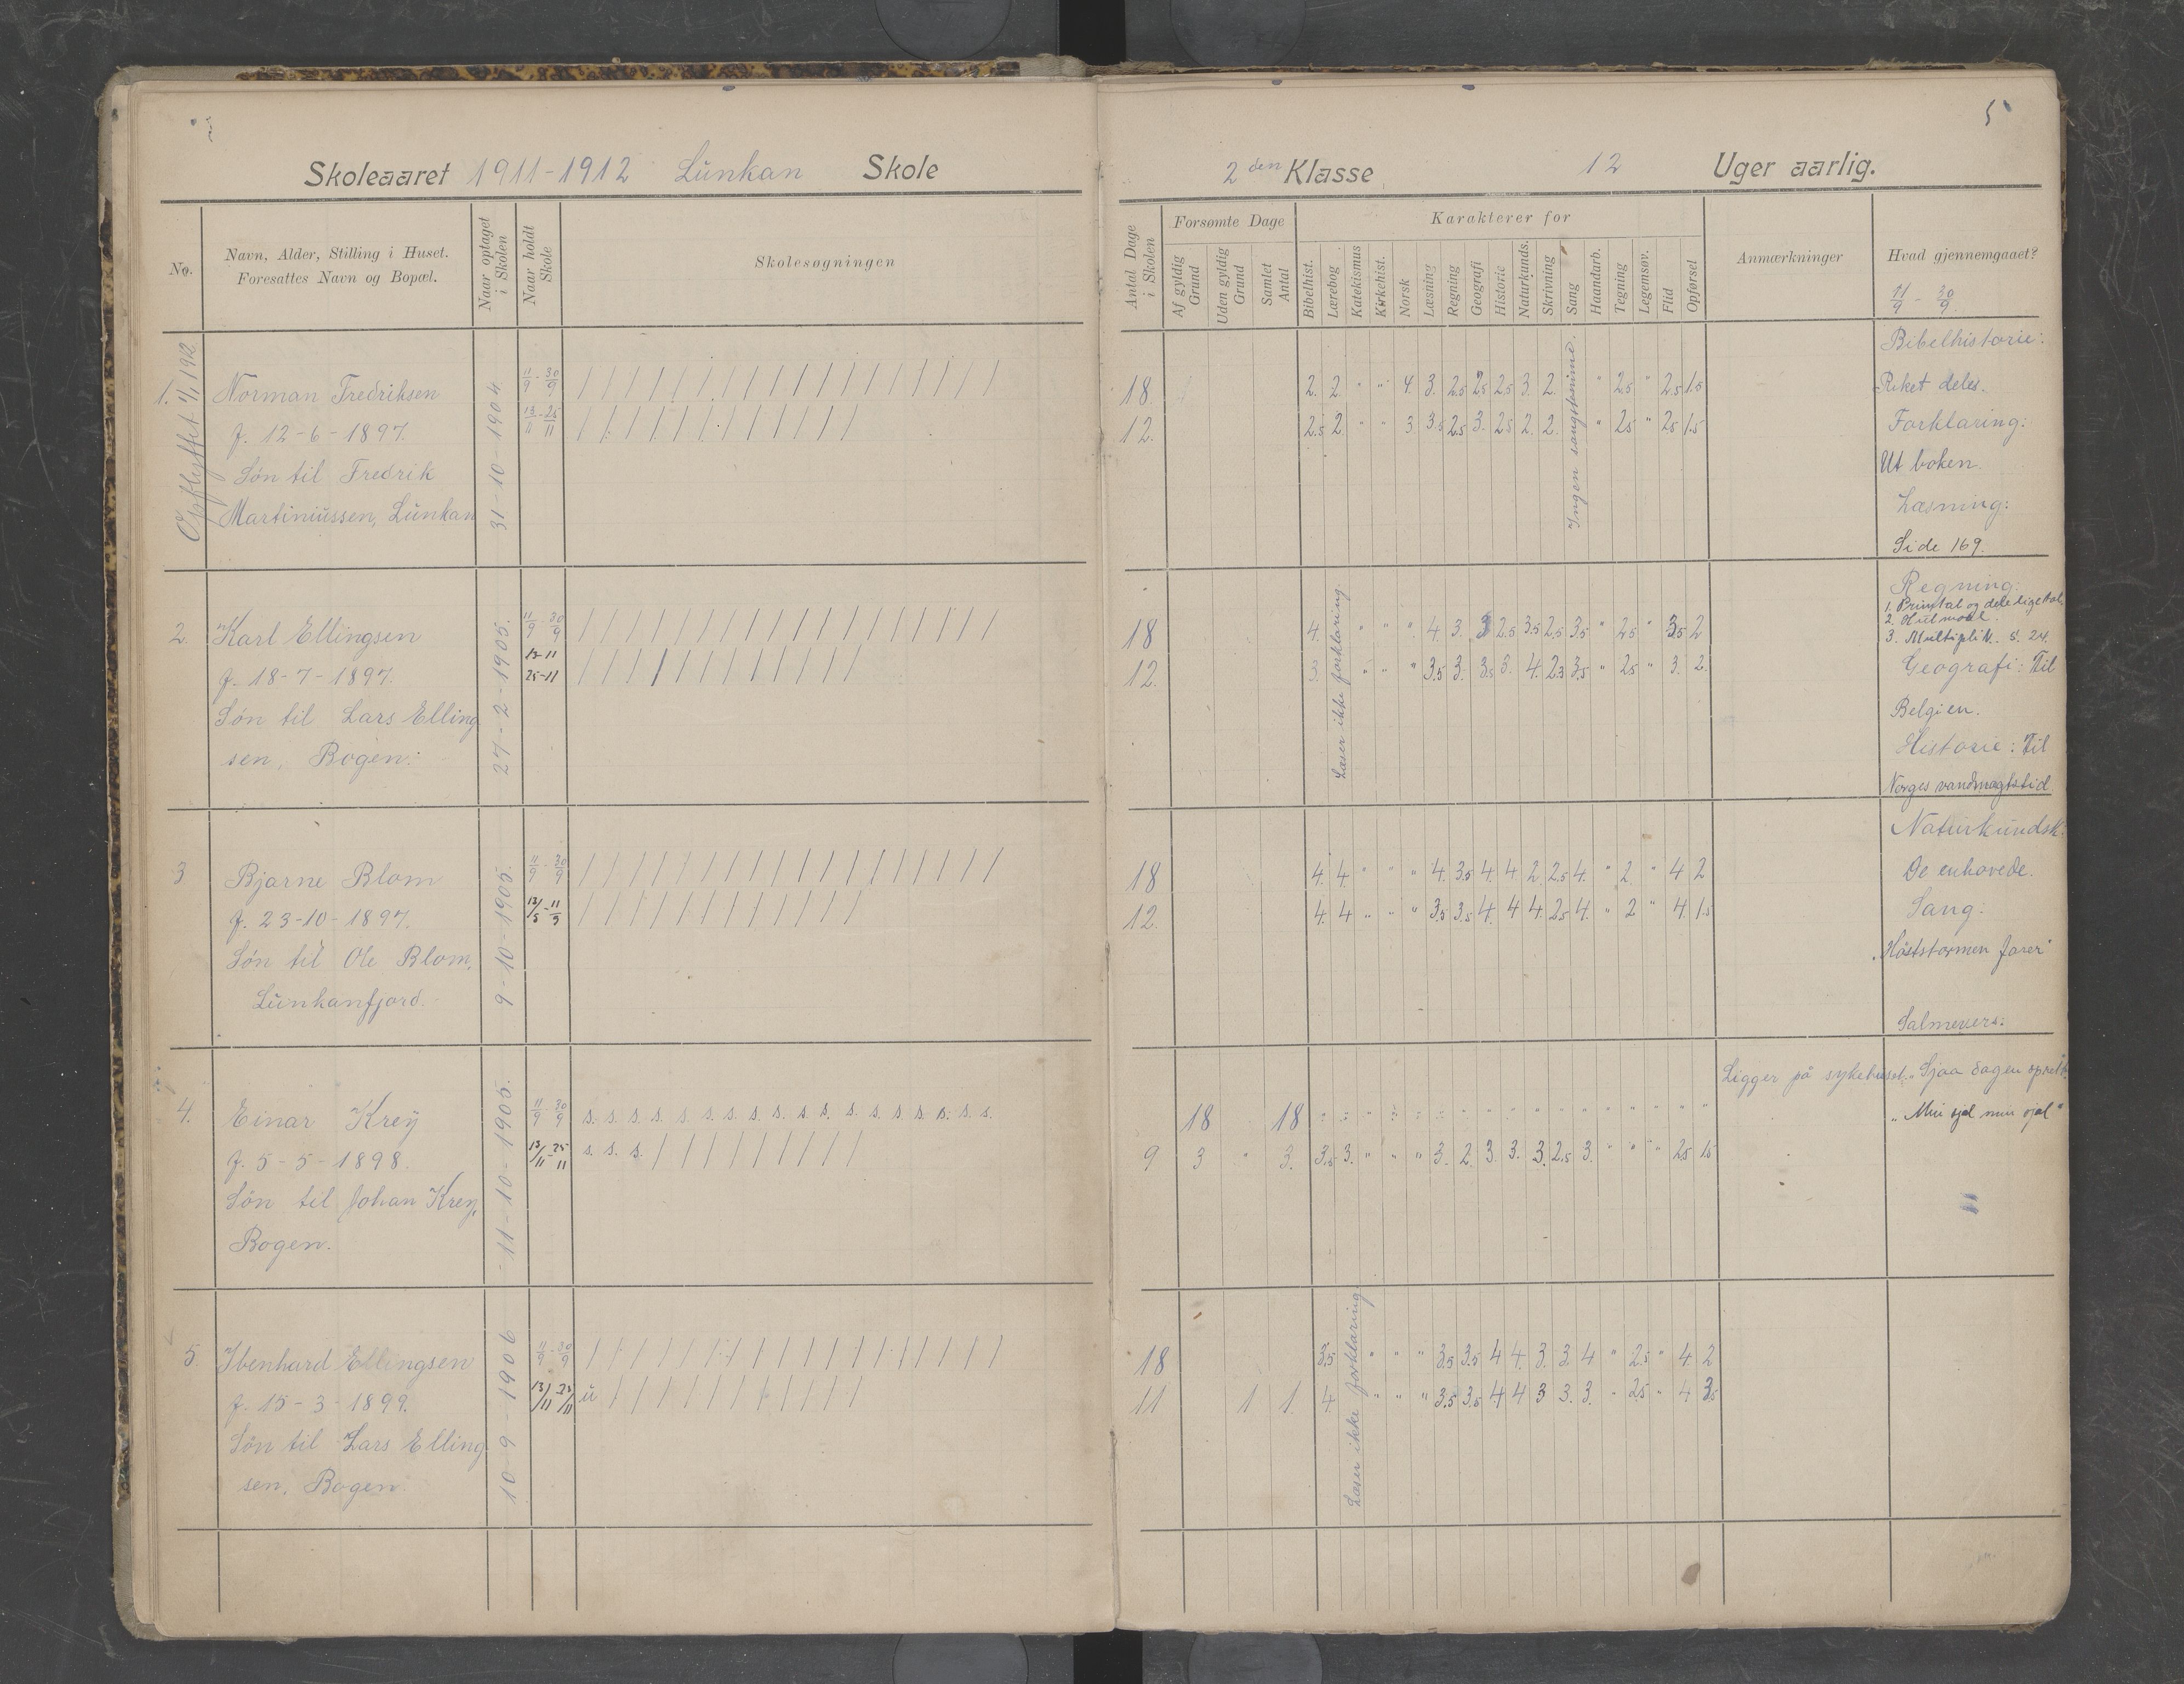 5
Skoleaaret 1911-1912 Lunkan Skole
2den Klasse 12 Uger aarlig.
No.
Navn, Alder, Stilling i Huset.
Foresattes Navn og Bopæl.
Naar optaget
i Skolen
Naar holdt
Skole
Skolesøgningen
Antal Dage
i Skolen
Forsømte Dage
Af gyldig
Grund
Uden gyldig
Grund
Samlet
Antal
Karakterer for
Bibelhist.
Lærebog
Katekismus
Kirkehist.
Norsk
Læsning
Regning
Geografi
Historie
Naturkunds.
Skrivning
Sang
Haandarb.
Tegning
Legemsøv.
Flid
Opførsel
Anmærkninger
Hvad gjennemgaaet?
11/9 - 30/9
Opflyttet 4/1 1912
1. Norman Fredriksen
f. 12-6-1897.
Søn til Fredrik
Martiniussen, Lunkan
31-10-1904.
11/9 - 30/9 / / / / / / / / / / / / / / / / / /
13/11 - 25/11 / / / / / / / / / / / /
18. 2. 2. " " 4 3. 2.5 2.5 2.5 3. 2. " 2.5 " 2.5 1.5
12. 2.5 2 " " 3. 3.5 2.5 3. 2.5 2. 2. " 2.5 " 2.5 1.5
Ingen sangstemme.
Bibelhistorie:
Riket deles.
Forklaring:
Ut boken.
Læsning:
Side 169.
2. Karl Ellingsen
f. 18-7-1897.
Søn til Lars Elling
sen, Bogen.
27-2-1905.
11/9 - 30/9 / / / / / / / / / / / / / / / / / /
13-11
25-11 / / / / / / / / / / / /
18 4. " " " 4. 3. 3 2.5 3.5 2.5 3.5 " 2.5 " 3.5 2
12. 3. " " " 3.5 3. 3.5 3. 4. 2.5 3.5 " 2.5 " 3. 2.
Læser ikke forklaring
Regning:
1. Primtal og delelige tal.
2. Hulmaal.
3. Multiplik. s. 24.
Geografi: Til
Belgien.
Historie: Til
Norges vandmagtstid
3 Bjarne Blom
f. 23-10-1897.
Søn til Ole Blom,
Lunkanfjord.
9-10-1905.
11/9 - 30/9 / / / / / / / / / / / / / / / / / /
/ / / / / / / / / / / /
18 4. 4. " " " 4. 3.5 4. 4 2 2.5 4. " 2. " 4 2
12. 4. 4 " " " 3.5 3.5 4. 4 4. 2.5 4. " 2 " 4. 1.5
Naturkundsk:
De enhovede.
Sang:
"Høststormen farer"
Salmevers:
4. Einar Krey
f. 5-5-1898.
Søn til Johan Krey,
Bogen.
11-10-1905.
11/9 - 30/9 s. s. s. s. s. s. s. s. s. s. s. s. s. s. s. s. s. s.
13/11 - 25/11 s. s. s. / / / / / / / / /
18 18 " " " " " " " " " " " " " " " " "
9 3 " 3. 3.5 3. " " " 3. 2. 3. 3. 3. 2.5 3. " " " 2.5 1.5
Ligger på sykehuset.
"Sjaa dagen sprett"
"Min sjæl min sjæl"
5. Ibenhard Ellingsen
f. 15-3-1899.
Søn til Lars Elling
sen, Bogen.
10-9-1906
11/9 - 30/9 / / / / / / / / / / / / / / / / / /
13/11 - 25/11 u / / / / / / / / / / /
18 3.5. " " " 3.5 3.5 4 4. 3. 3. 4 " 2.5 " 4. 2
11 1 1. 4. " " " 3.5 3.5 4 4 3 3. 3. " 2.5 " 4 3.5
Læser ikke forklaring